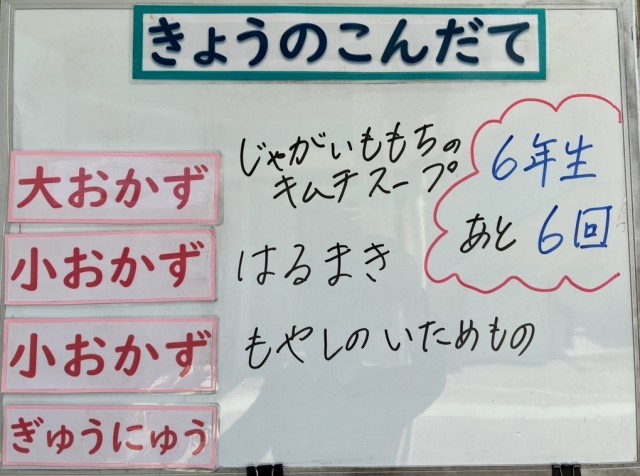 きょうのこんだて
大おかず
じゃがいももちの
キムチスープ
6年生
あと 6回
小おかず
はるまき
小おかず
もやしのいためもの
ぎゅうにゅう